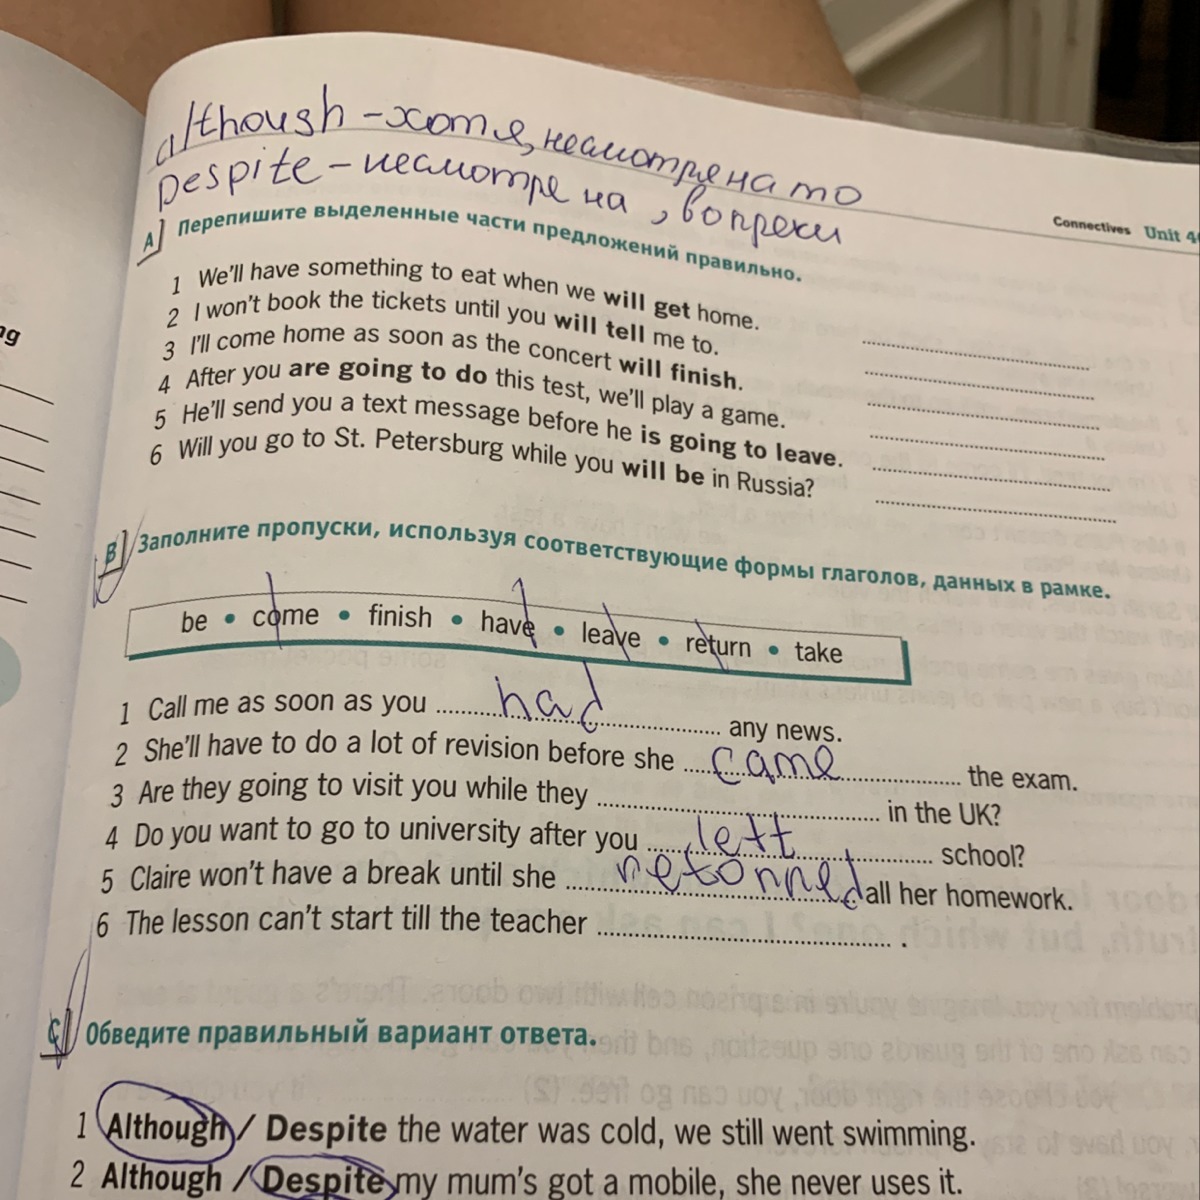 although - хотя, несмотря на то
Despite - несмотря на, вопреки
Connectives Unit
A Перепишите выделенные части предложений правильно.
1 We'll have something to eat when we will get home.
2 I won't book the tickets until you will tell me to.
3 I'll come home as soon as the concert will finish.
4 After you are going to do this test, we'll play a game.
5 He'll send you a text message before he is going to leave.
6 Will you go to St. Petersburg while you will be in Russia?
B Заполните пропуски, используя соответствующие формы глаголов, данных в рамке.
be • come • finish • have • leave • return • take
1 Call me as soon as you had any news.
2 She'll have to do a lot of revision before she came the exam.
3 Are they going to visit you while they in the UK?
4 Do you want to go to university after you left school?
5 Claire won't have a break until she retorned all her homework.
6 The lesson can't start till the teacher .
C Обведите правильный вариант ответа.
1 Although / Despite the water was cold, we still went swimming.
2 Although / Despite my mum's got a mobile, she never uses it.